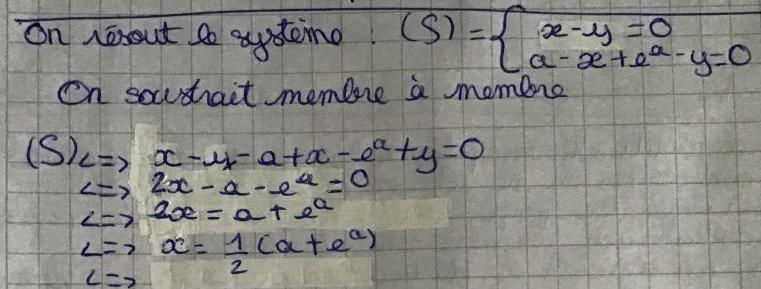 On résout le système : (S) = { x - y = 0
a - x + e^a - y = 0
On soustrait membre à membre
(S) <=> x - y - a + x - e^a + y = 0
<=> 2x - a - e^a = 0
<=> 2x = a + e^a
<=> x = 1/2 (a + e^a)
<=>